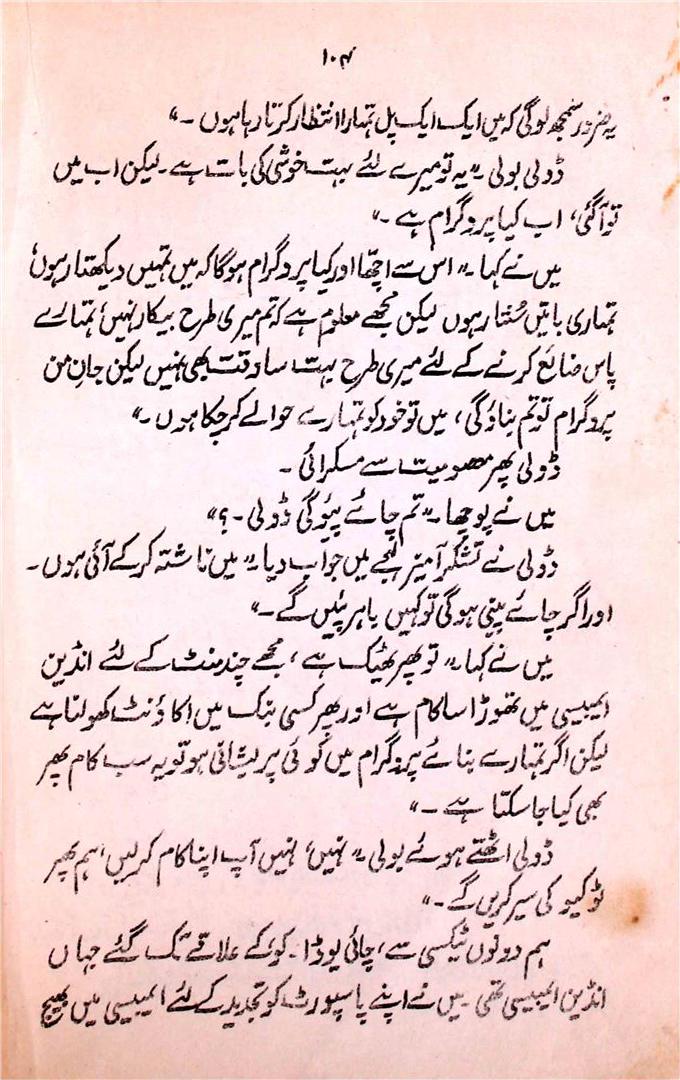 ۱۰۴
یہ ضرور سمجھ لوگی کہ میں ایک ایک پل تمہارا انتظار کرتا رہا ہوں ۔"
ڈولی بولی ۔" یہ تو میرے لئے بہت خوشی کی بات ہے ۔ لیکن اب میں
تو آگئی، اب کیا پروگرام ہے ۔"
میں نے کہا ۔" اس سے اچھّا اور کیا پروگرام ہوگا کہ میں تمہیں دیکھتا رہوں
تمہاری باتیں سُنتا رہوں لیکن مجھے معلوم ہے کہ تم میری طرح بیکار نہیں، تمہارے
پاس ضائع کرنے کے لئے میری طرح بہت سا وقت بھی نہیں لیکن جانِ من
پروگرام تو تم بناؤگی، میں تو خود کو تمہارے حوالے کر چکا ہوں ۔"
ڈولی پھر معصومیت سے مسکرائی ۔
میں نے پوچھا ۔" تم چائے پیؤگی ڈولی ۔؟"
ڈولی نے تشکّر آمیز لہجے میں جواب دیا ۔" میں ناشتہ کر کے آئی ہوں ۔
اور اگر چائے پینی ہوگی تو کہیں باہر پئیں گے ۔"
میں نے کہا ۔" تو پھر ٹھیک ہے ، مجھے چند منٹ کے لئے انڈین
ایمبیسی میں تھوڑا سا کام ہے اور پھر کسی بنک میں اکاؤنٹ کھولنا ہے
لیکن اگر تمہارے بنائے پروگرام میں کوئی پریشانی ہو تو یہ سب کام پھر
بھی کیا جا سکتا ہے ۔"
ڈولی اٹھتے ہوئے بولی ۔" نہیں، نہیں آپ اپنا کام کرلیں، ہم پھر
ٹوکیو کی سیر کریں گے ۔"
ہم دونوں ٹیکسی سے، چائی یوڈا ۔ کوُ کے علاقے تک گئے جہاں
انڈین ایمبیسی تھی ۔ میں نے اپنے پاسپورٹ کو تجدید کے لئے ایمبیسی میں بھیج